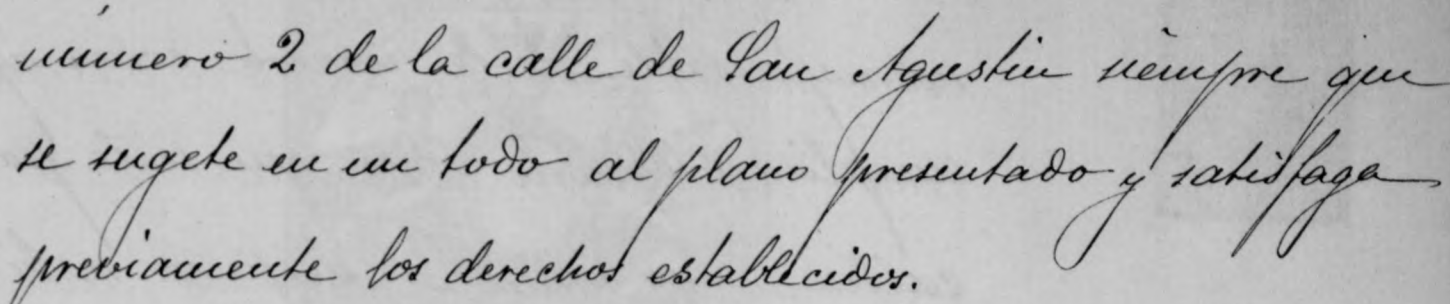 número 2 de la calle de San Agustin siempre que
se sugete en un todo al plano presentado y satisfaga
previamente los derechos establecidos.